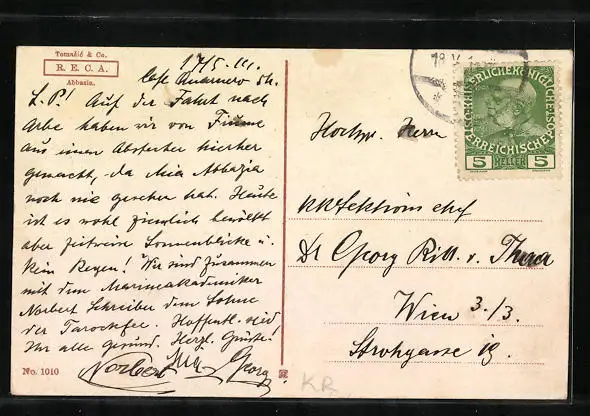 Tomašić & Co.
R. E. C. A.
Abbazia.
17/5. 1911.
Café Quarnero
L. P.! Auf der Fahrt nach
Arbe haben wir von Fiume
aus einen Abstecher hierher
gemacht, da Mia Abbazia
noch nie gesehen hat. Heute
ist es wohl ziemlich bewölkt
aber zeitweise Sonnenblicke u.
kein Regen! Wir sind zusammen
mit dem Marineakademiker
Norbert Schreiber dem Sohne
der Tarockfee. Hoffentl. seid
Ihr alle gesund. Herzl. Grüße!
Norbert Mia Georg
No. 1010
18. V.
KAISERLICHE KÖNIGLICHE
ÖSTERREICHISCHE
5 HELLER 5
Hochgr. Herrn
KK Sektionschef
Dr Georg Ritt. v. Thaa
Wien 3./3.
Strohgasse 19.
KR